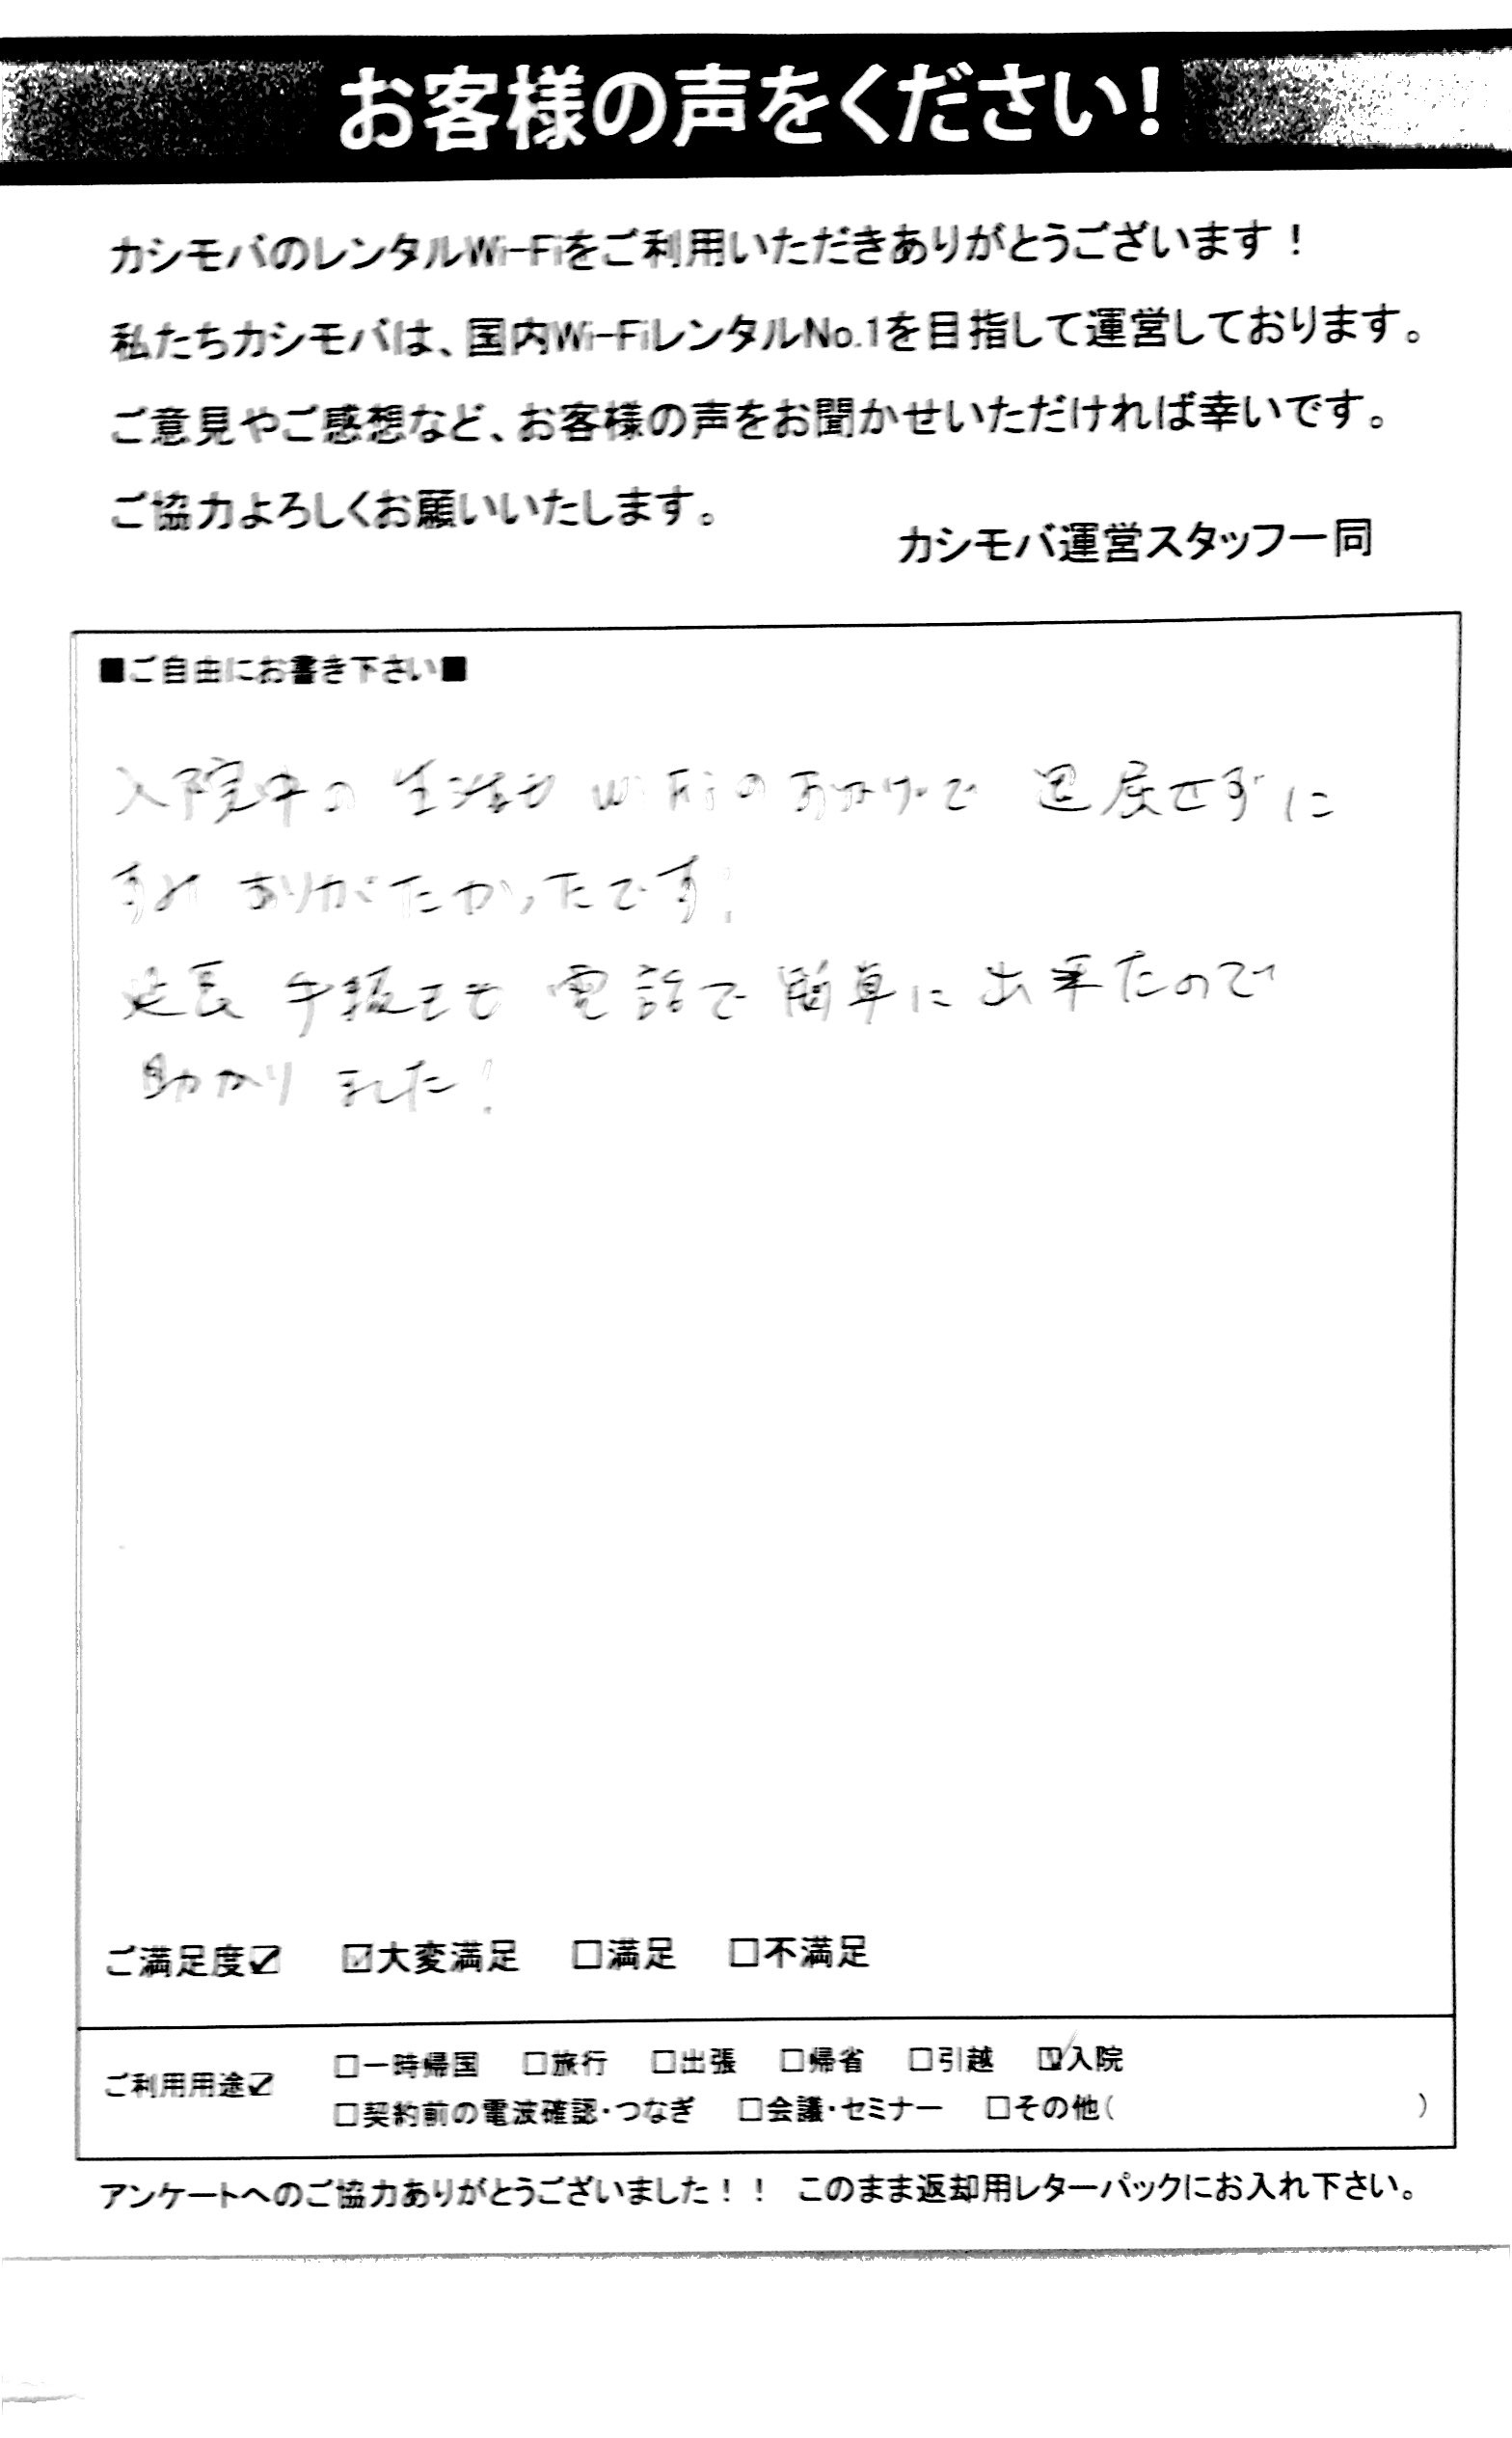 お客様の声をください!
カシモバのレンタルWi-Fiをご利用いただきありがとうございます！
私たちカシモバは、国内Wi-FiレンタルNo.1を目指して運営しております。
ご意見やご感想など、お客様の声をお聞かせいただければ幸いです。
ご協力よろしくお願いいたします。
カシモバ運営スタッフ一同
■ご自由にお書き下さい■
入院中の生活も WiFiのおかげで 退屈せずに
すみ ありがたかったです!
延長 手続きも 電話で 簡単に 出来たので
助かり ました!
ご満足度☑ ☑大変満足 □満足 □不満足
ご利用用途☑ □一時帰国 □旅行 □出張 □帰省 □引越 ☑入院
□契約前の電波確認・つなぎ □会議・セミナー □その他( )
アンケートへのご協力ありがとうございました！！ このまま返却用レターパックにお入れ下さい。